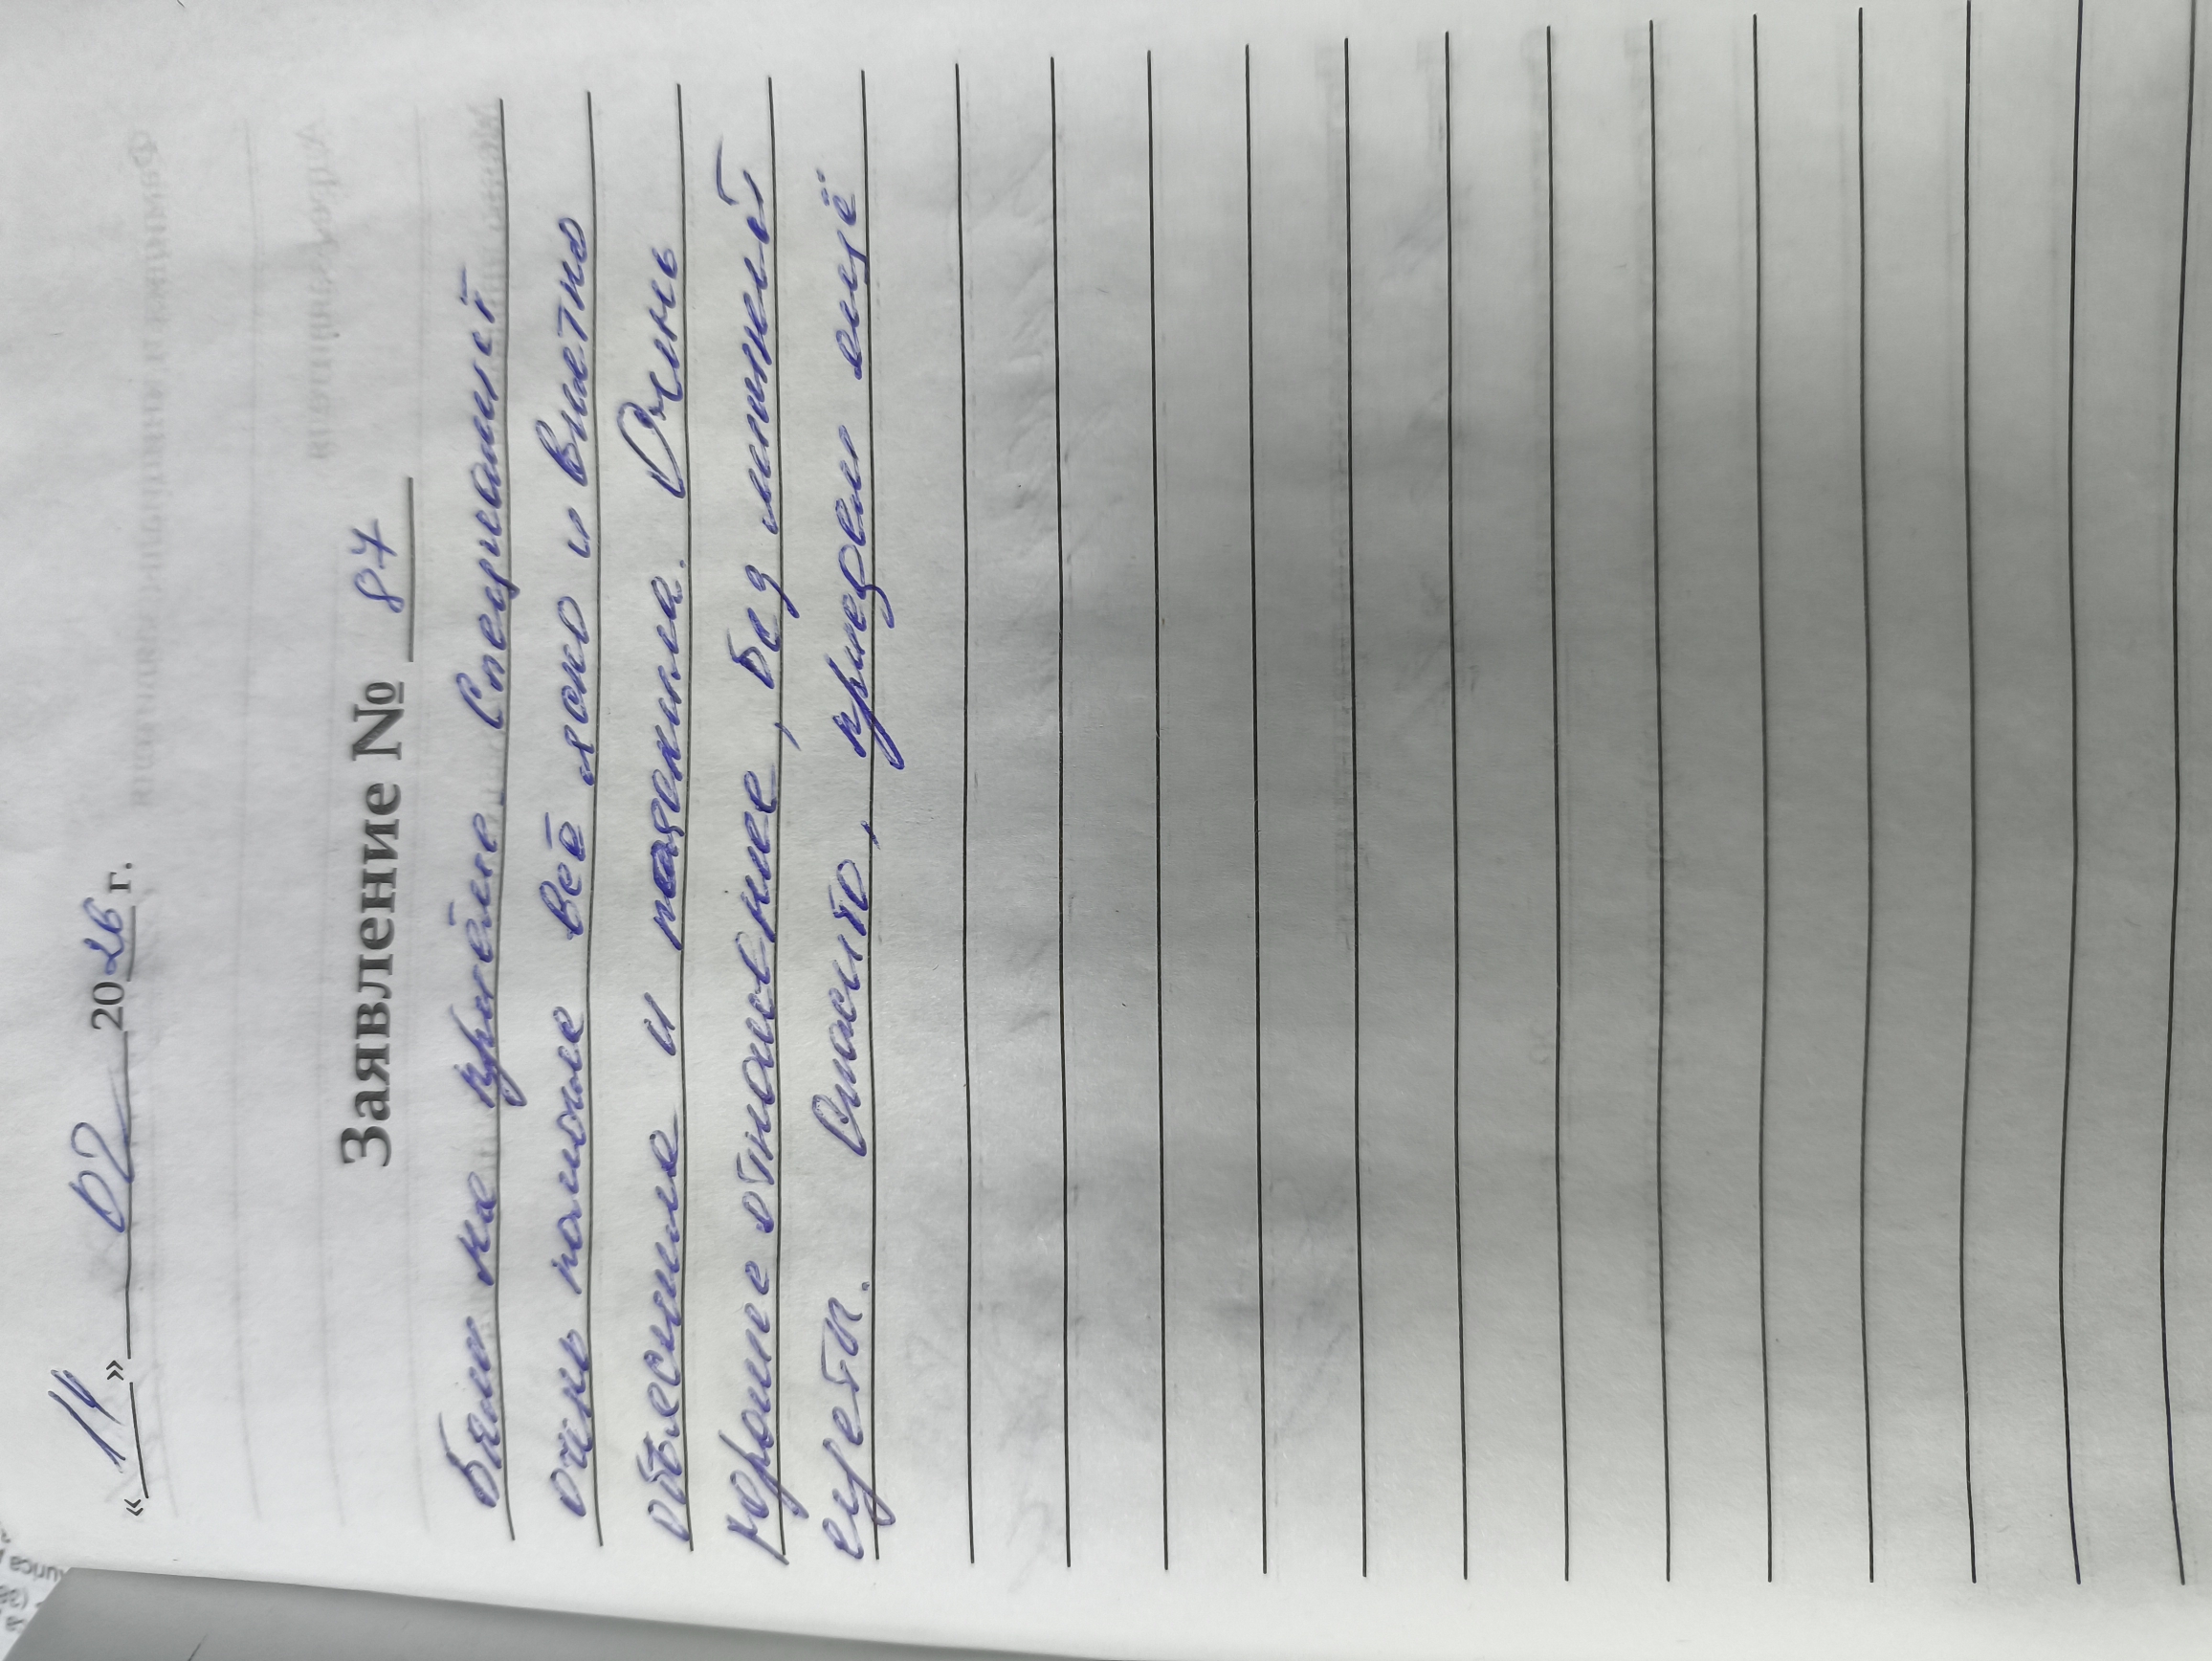 «14» 02 2026 г.
Заявление № 87
Были на приёме. Специалист
очень хороше всё ясно и внятно
объяснила и показала. Очень
хорошие отношение, без лишней
суеты. Спасибо, приедем ещё